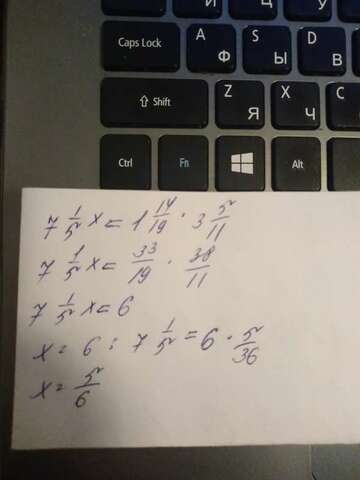 Й Ц У
Caps Lock A S D
Ф Ы В
⇧ Shift Z X C
Я Ч
Ctrl Fn Alt
7 1/5 x = 1 14/19 · 3 5/11
7 1/5 x = 33/19 · 38/11
7 1/5 x = 6
x = 6 : 7 1/5 = 6 · 5/36
x = 5/6